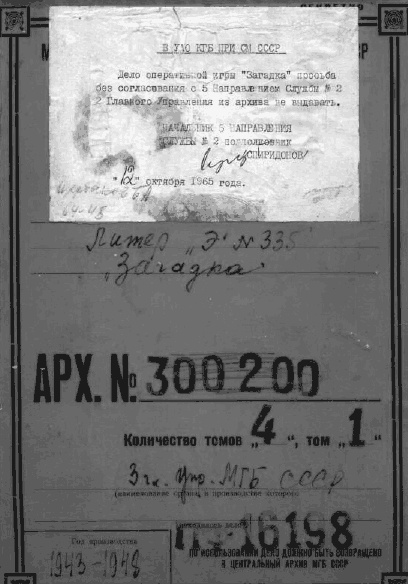 В УАО КГБ ПРИ СМ СССР
Дело оперативной игры "Загадка" просьба
без согласования с 5 Направлением Службы № 2
2 Главного Управления из архива не выдавать.
НАЧАЛЬНИК 5 НАПРАВЛЕНИЯ
СЛУЖБЫ № 2 подполковник
СПИРИДОНОВ/
"12" октября 1965 года.
Литер „Э" № 335
„Загадка"
АРХ. № 300200
Количество томов „4", том „1"
3 гл. Упр. МГБ СССР
(наименование органа, в производстве которого
находилось дело)
Год производства
1943-1948
16198
ПО ИСПОЛЬЗОВАНИИ ДЕЛО ДОЛЖНО БЫТЬ ВОЗВРАЩЕНО
В ЦЕНТРАЛЬНЫЙ АРХИВ МГБ СССР